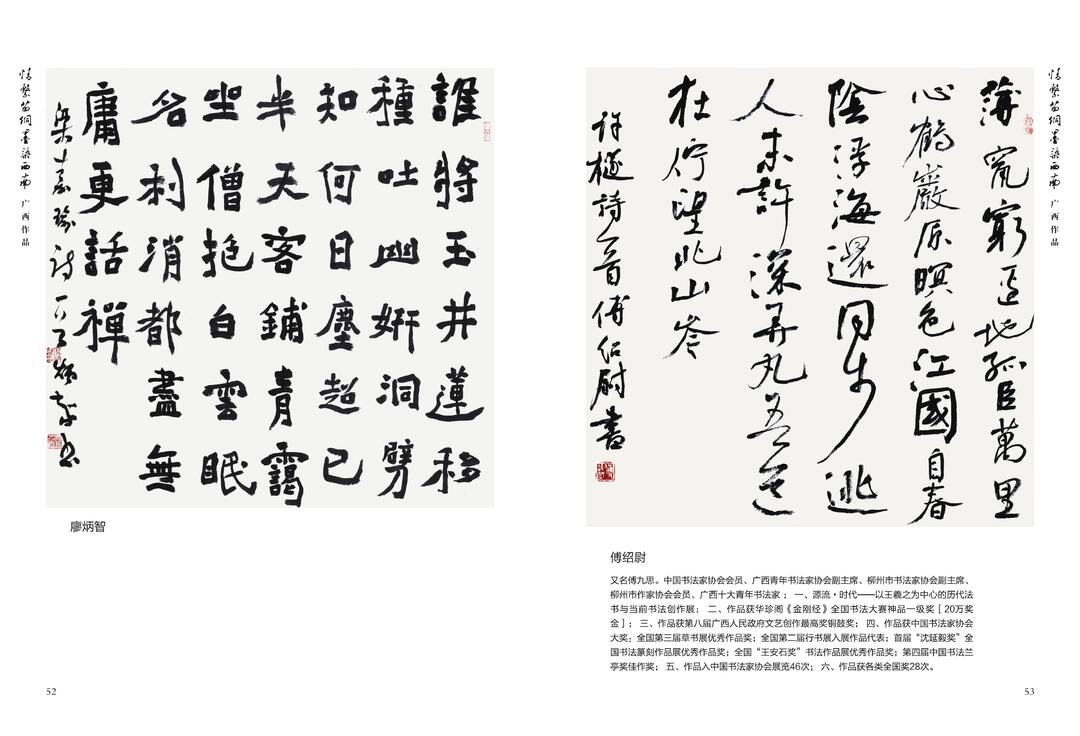 情繫 墨染西南 广西作品
誰將玉井蓮移
種吐幽妍洞劈
知何日塵超已
半天客鋪青靄
坐僧抱白雲眠
名利消都盡無
庸更話禪
廖炳智
52
情繫 墨染西南 广西作品
薄宦窮邊地孤臣萬里
心鶴巖原暝色江國自春
陰浮海還同步逃
人未許深弄丸吾道
在佇望北山岑
許樾詩一首傅紹尉書
傅绍尉
又名傅九思。中国书法家协会会员、广西青年书法家协会副主席、柳州市书法家协会副主席、
柳州市作家协会会员、广西十大青年书法家 ； 一、源流·时代——以王羲之为中心的历代法
书与当前书法创作展； 二、作品获华珍阁《金刚经》全国书法大赛神品一级奖［20万奖
金］； 三、作品获第八届广西人民政府文艺创作最高奖铜鼓奖； 四、作品获中国书法家协会
大奖：全国第三届草书展优秀作品奖；全国第二届行书展入展作品代表；首届“沈延毅奖”全
国书法篆刻作品展优秀作品奖；全国“王安石奖”书法作品展优秀作品奖；第四届中国书法兰
亭奖佳作奖； 五、作品入中国书法家协会展览46次； 六、作品获各类全国奖28次。
53